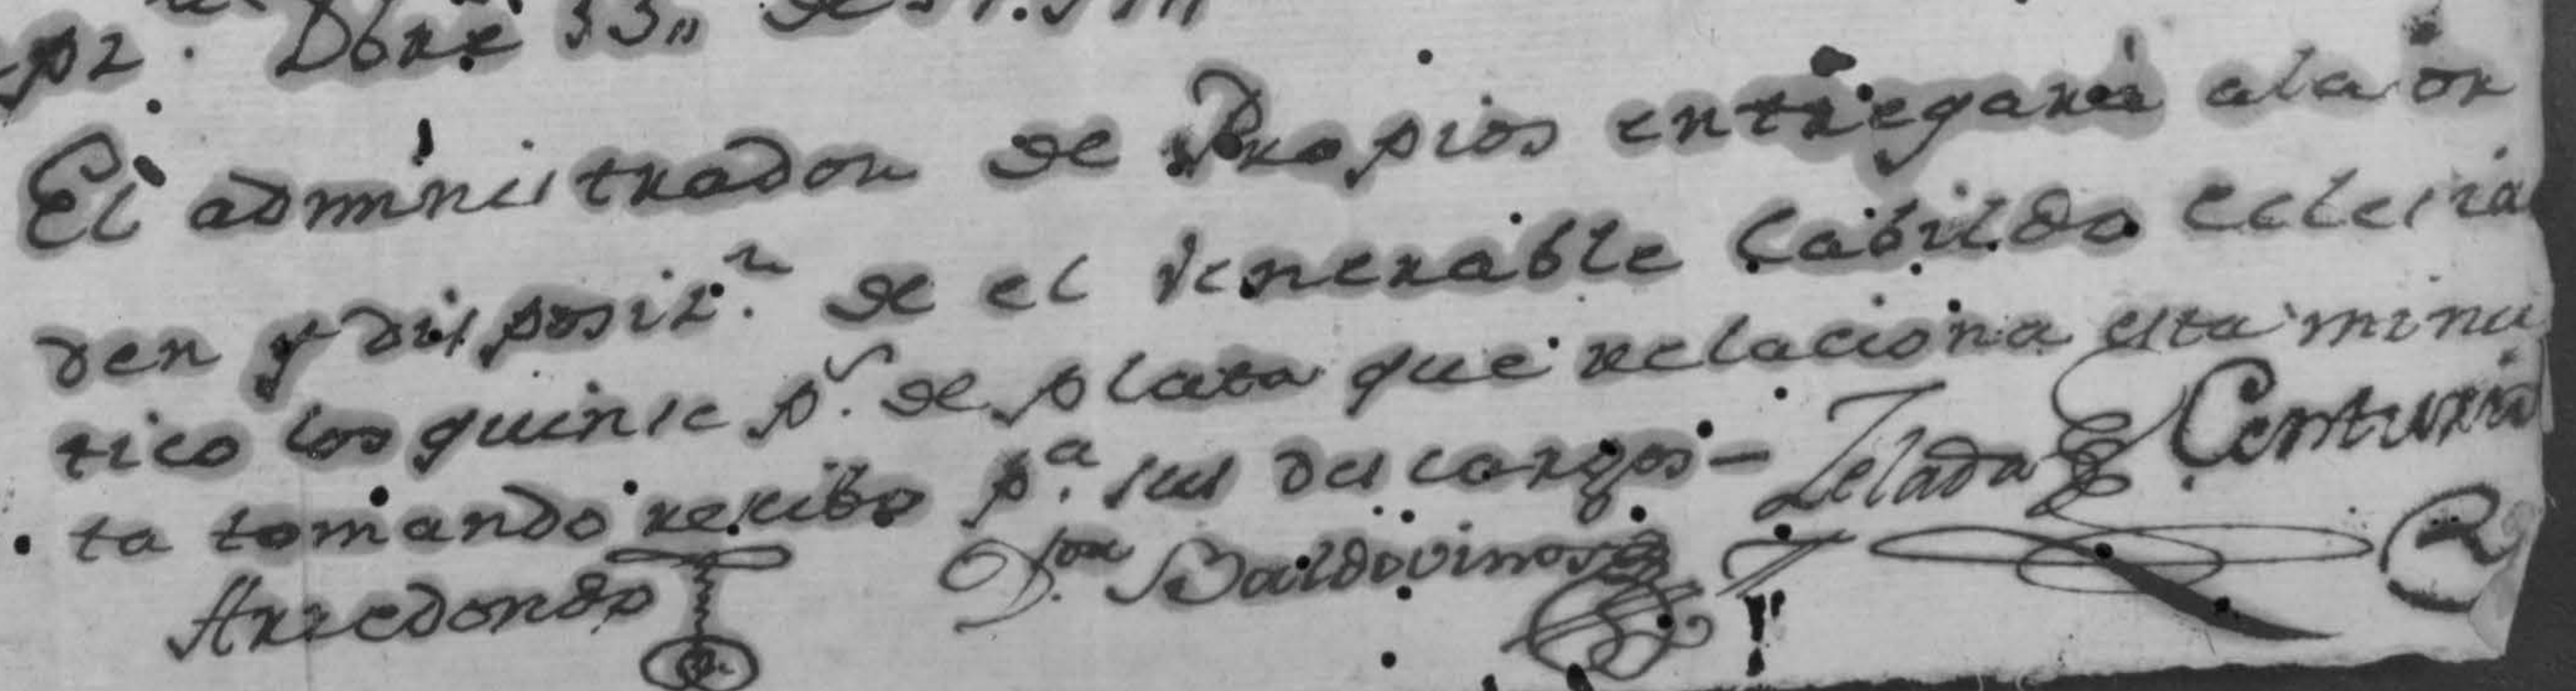 Dbre 33,, de
El administrador de Propios entregará ala or
den y disposiz.n de el Venerable Cabildo Eclesiás
tico los quinse p.s de plata que relaciona esta minu
ta tomando resibo p.a sus descargos — Zelada Centurión
Arredondo D.tor Baldovinos